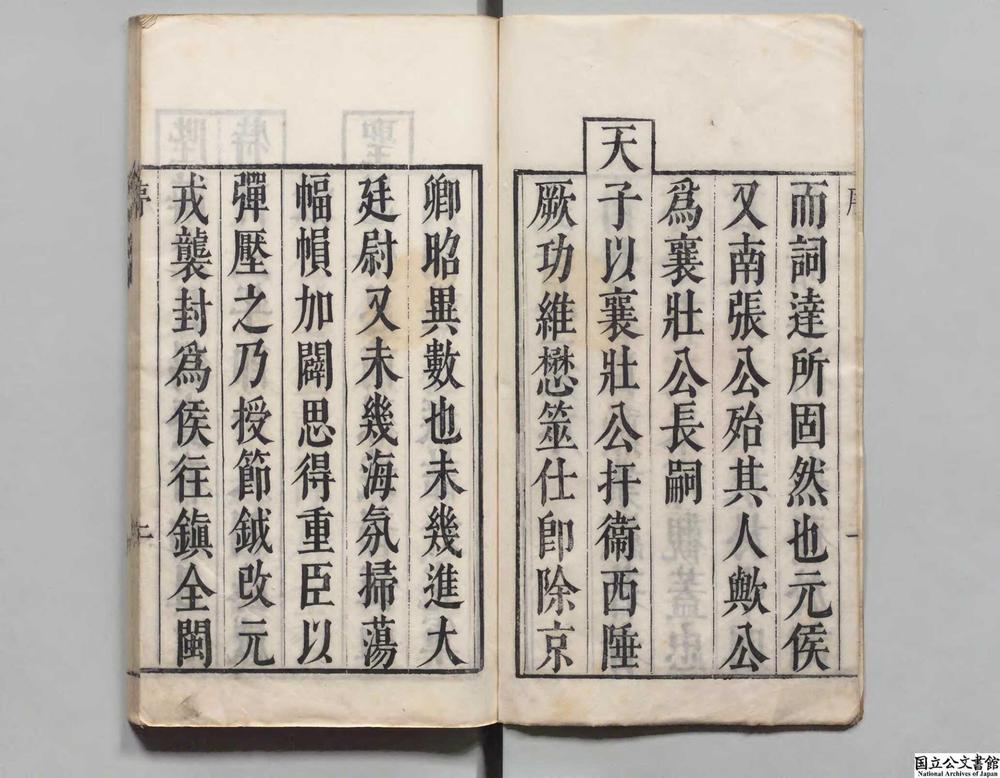 而詞達所固然也元侯
又南張公殆其人歟公
為襄壯公長嗣
天子以襄壯公扞衞西陲
厥功維懋筮仕即除京
卿昭異數也未幾進大
廷尉又未幾海氛掃蕩
幅幀加闢思得重臣以
彈壓之乃授節鉞改元
戎襲封為侯往鎮全閩
序
二
国立公文書館
National Archives of Japan